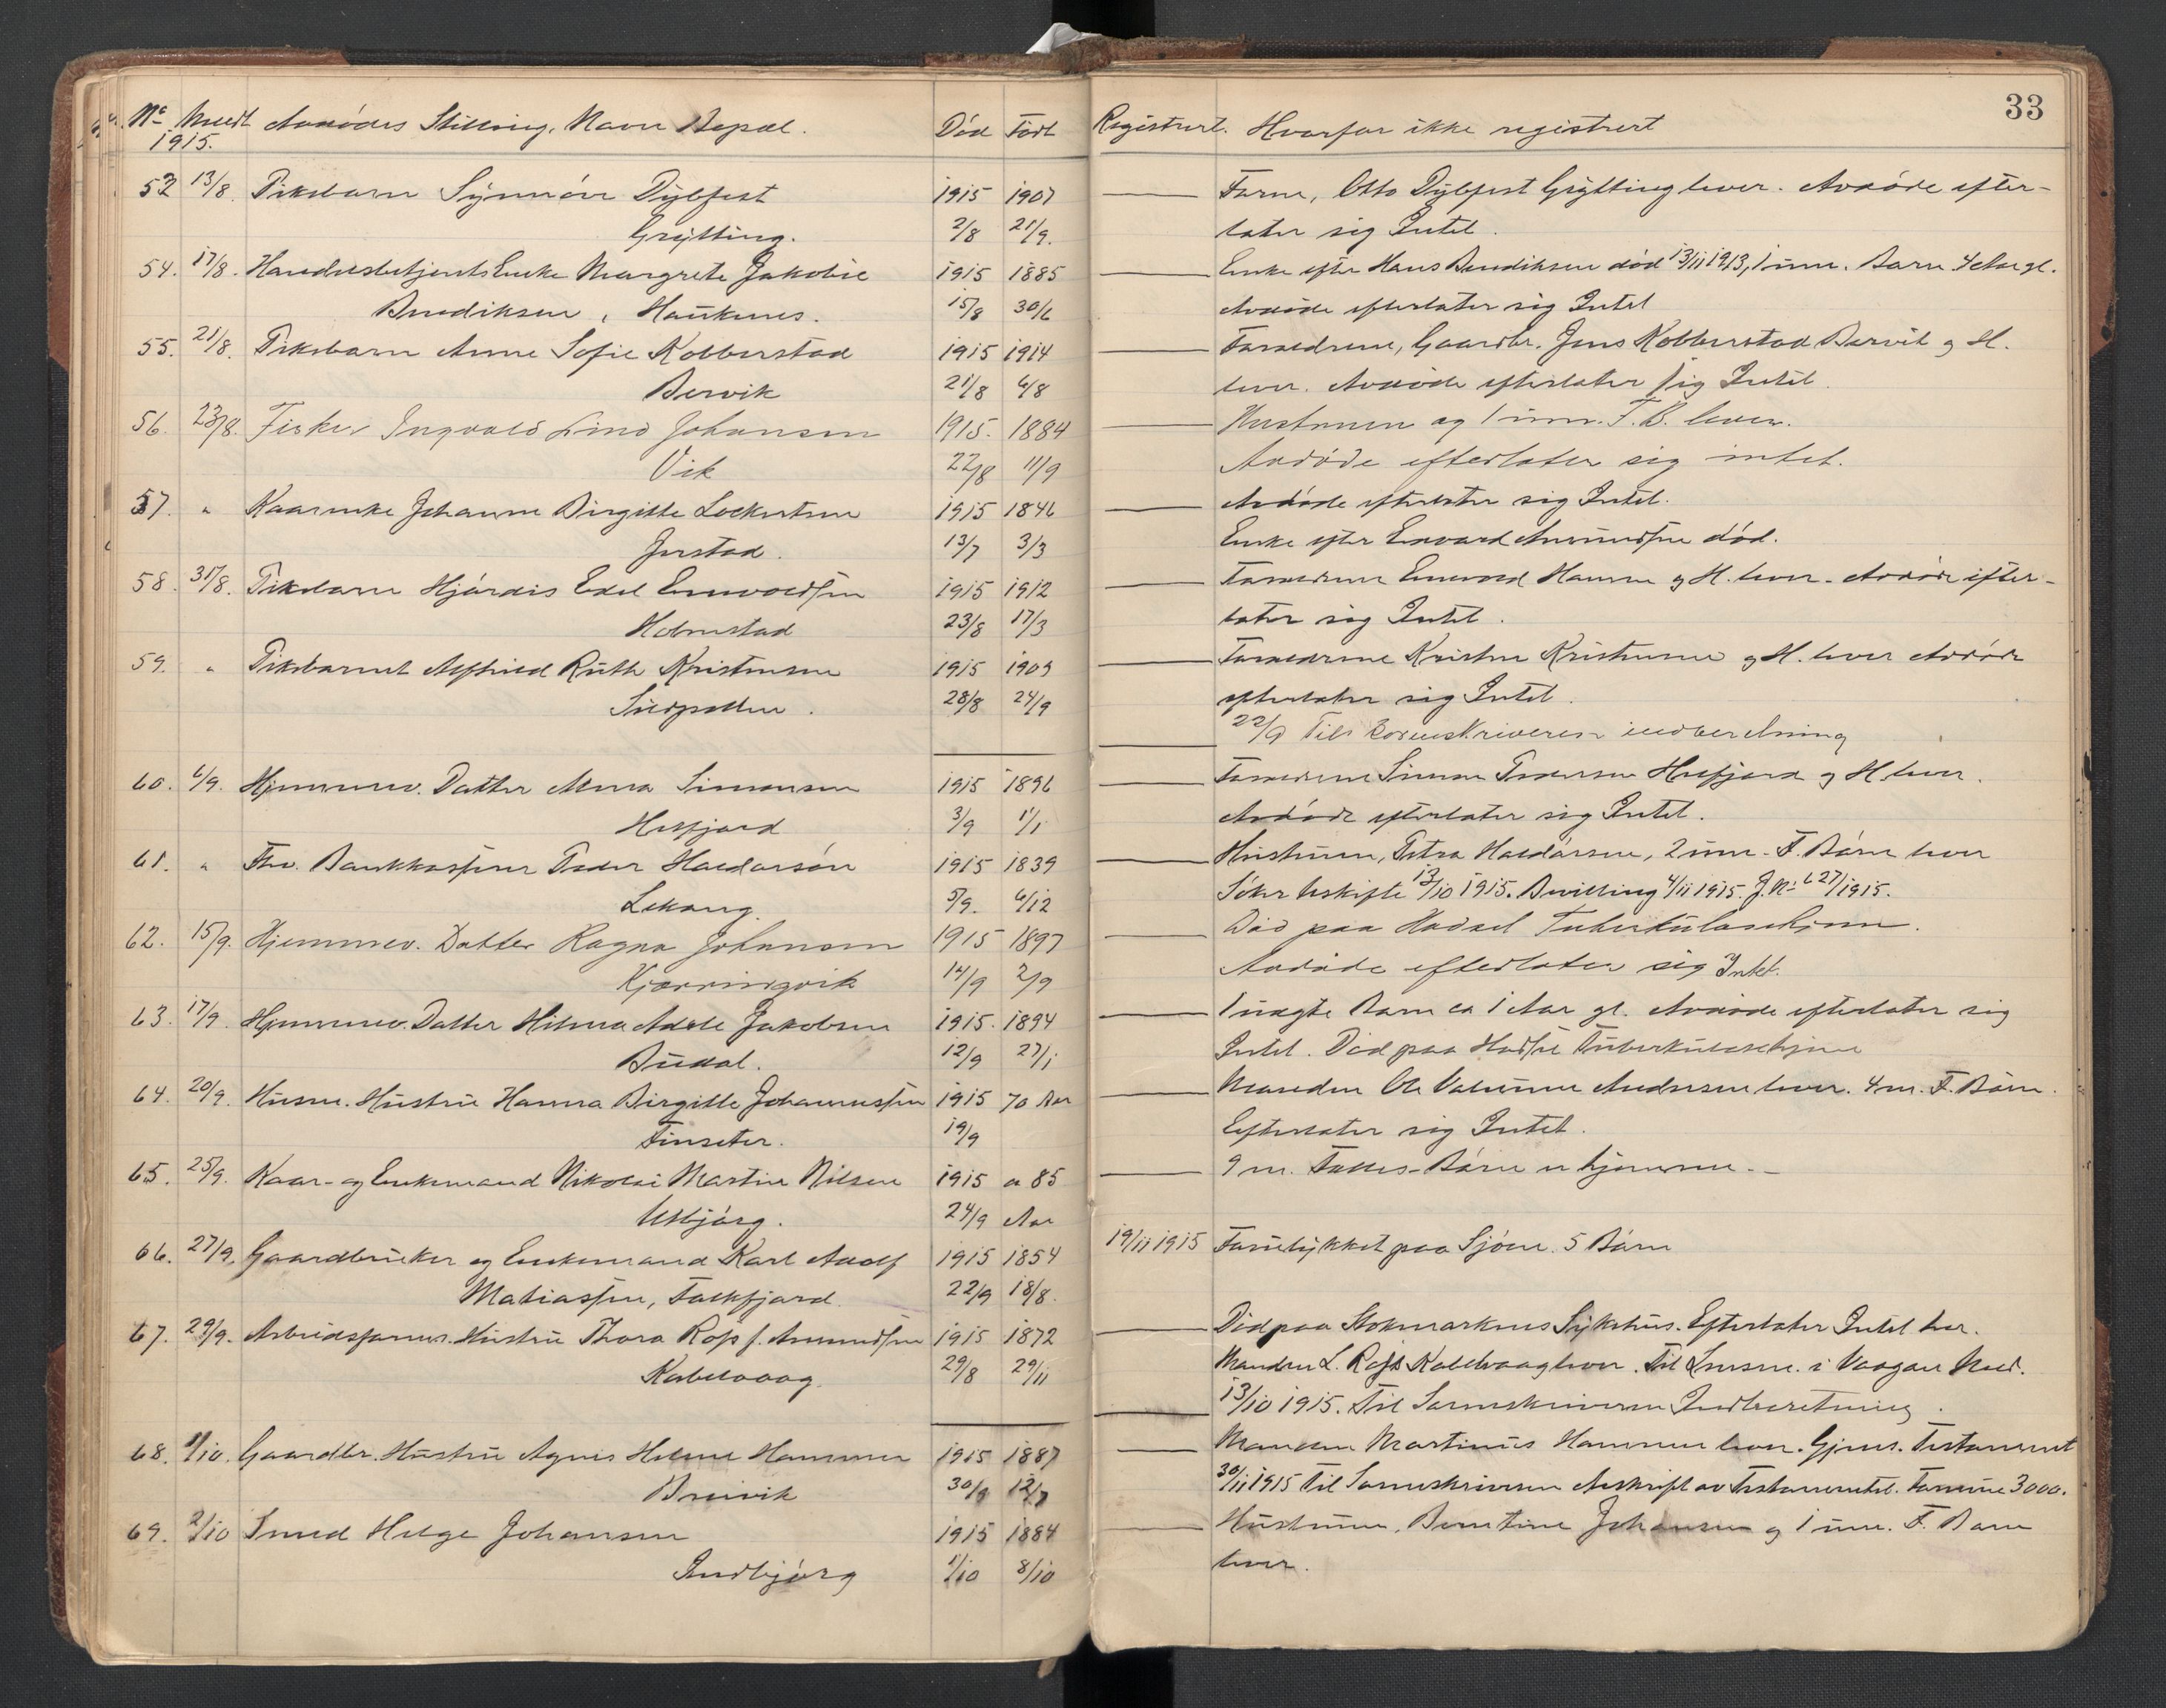 33
Nº Meldt Avdødes Stilling, Navn Bopæl. Død Født Registrert. Hvorfor ikke registrert
1915.
53 13/8. Pikebarn Synnøve Dybfest 1915 1907 Farne, Otto Dybfest Grytting lever. Avdøde efter-
Grytting. 2/8 21/9. later sig Intet.
54. 17/8. Handelsbetjents Enke Margrete Jakobie 1915 1885 Enke efter Hans Bendiksen død 13/11 1913, 1 um. Barn 4 Aar gl.
Bendiksen, Haukenes. 15/8 30/6 Avdøde efterlater sig Intet
55. 21/8. Pikebarn Anne Sofie Kobberstad 1915 1914 Forældrene, Gaardbr. Jens Kobberstad Bervik og H.
Bervik 21/8 6/8 lever. Avdøde efterlater sig Intet.
56. 23/8. Fisker Ingvald Lind Johansen 1915. 1884 Hustruen og 1 um. F. B. lever.
Vik 22/8 11/9 Avdøde efterlater sig intet.
57. " Kaarenke Johanne Birgitte Lockertsen 1915 1846 Avdøde efterlater sig Intet.
Jerstad. 13/7 3/3 Enke efter Edvard Amundsen død.
58. 31/8. Pikebarn Hjørdis Edel Enevoldsen 1915 1912 Forældrene Enevold Hansen og H. lever. Avdøde efter-
Holmstad 23/8 17/3 later sig Intet.
59. " Pikebarnet Alfhild Ruth Kristensen 1915 1909 Forældrene Kristen Kristensen og H. lever Avdøde
Sildpollen. 28/8 24/9 efterlater sig Intet.
22/9 Til Sorenskriveren indberetning
60. 6/9. Hjemmev. Datter Anna Simonsen 1915 1896 Forældrene Simon Pedersen Holfjord og H. lever.
3/9 1/1 Avdøde efterlater sig Intet.
61. " Fhv. Bankkasserer Peder Haldorsøn 1915 1839 Hustruen, Petra Haldorsen, 2 um. F. Børn lever
Lekang. 5/9. 6/12 Søker Uskifte 13/10 1915. Bevilling 4/11 1915. J. Nº 627/1915.
62. 15/9. Hjemmev. Datter Ragna Johansen 1915 1897 Død paa Hadsel Tuberkulosehjem.
Kjerringvik 14/9 2/9 Avdøde efterlater sig Intet.
63. 17/9. Hjemmev. Datter Hilma Adele Jakobsen 1915. 1894 1 uegte Barn ca 1 Aar gl. Avdøde efterlater sig
Budal. 12/9 27/1 Intet. Død paa Hadsel Tuberkulosehjem
64. 20/9. Husm. Hustru Hanna Birgitte Johannessen 1915 70 Aar Manden Ole Andersen lever. 4 m. F. Børn.
Finseter. 19/9 Efterlater sig Intet.
65. 25/9. Kaar- og Enkemand Nikolai Martin Nilsen 1915 ca 85 9 m. Fælles-Børn er hjemme.
Uthjørg. 24/9 Aar
66. 27/9. Gaardbruker og Enkemand Karl Adolf 1915 1854 19/11 1915 Forulykket paa Sjøen. 5 Børn
Matiassen, Falkfjord. 22/9 18/8.
67. 29/9. Arbeidsform. Hustru Thora Rops f. Amundsen 1915 1872 Død paa Stokmarknes Sykehus. Efterlater Intet her.
Kabelvaag. 29/8 29/11 Manden L. Rops Kabelvaag lever. Til Lensm. i Vaagan Med.
13/10 1915. Til Sorenskriveren Indberetning.
68. 1/10. Gaardbr. Hustru Agnes Helene Hammer 1915 1887 Manden Martinus Hammer lever. Gjens. Testament
Breivik 30/9 12/7 30/11 1915 Til Sorenskriveren Avskrift av Testamentet. Formue 3000.
69. 2/10 Smed Helge Johansen 1915 1884 Hustruen, Berntine Johansen og 1 um. F. Barn
Indbjørg 1/10 8/10 lever.